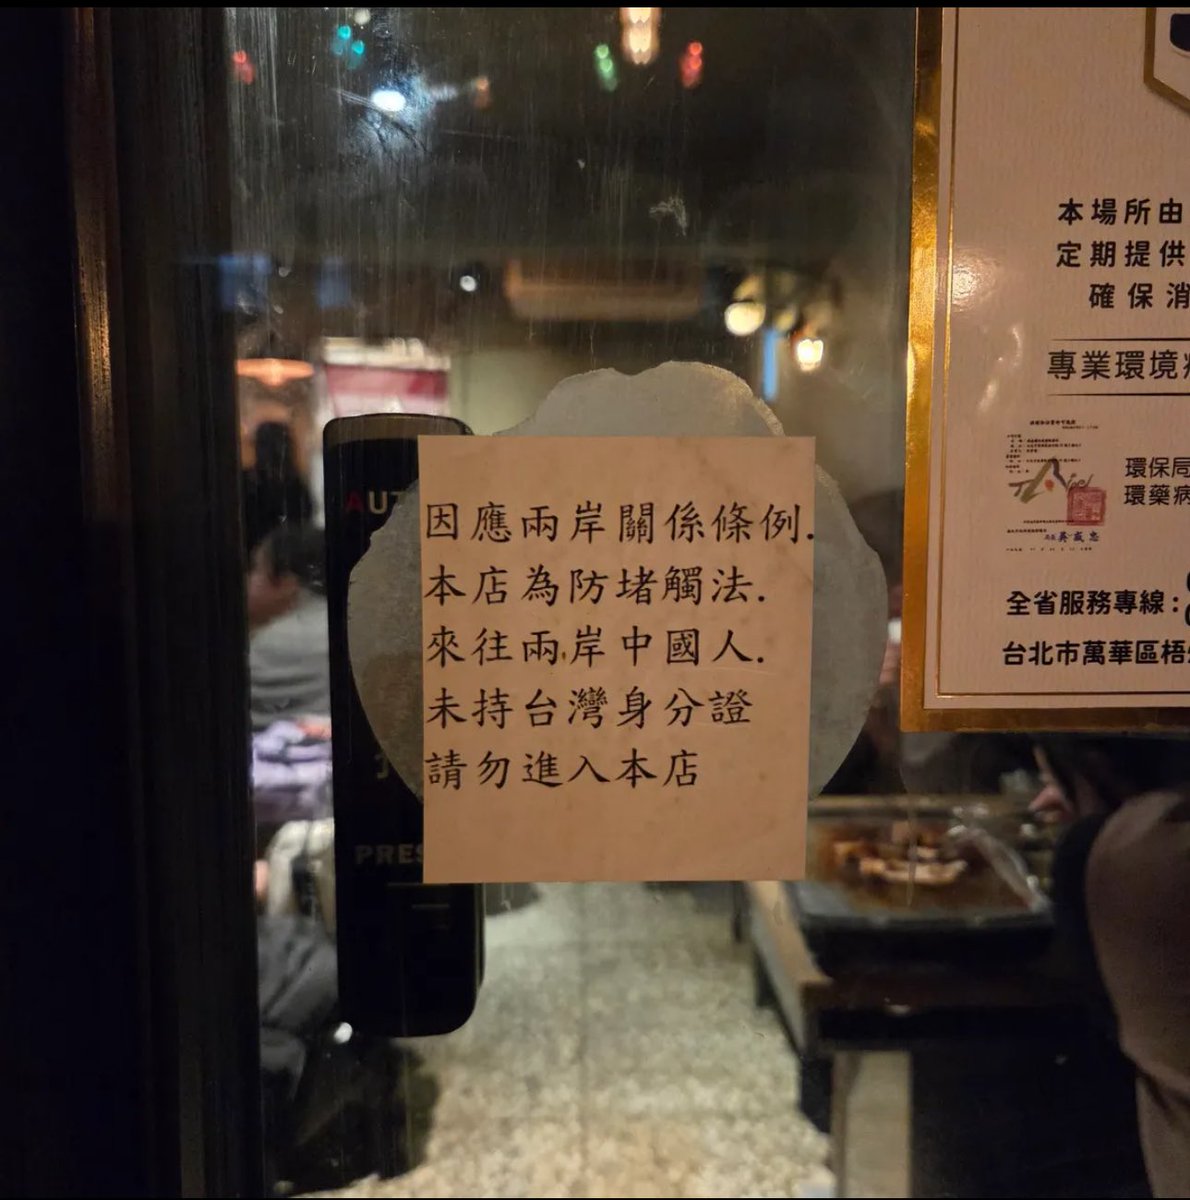 因應兩岸關係條例.
本店為防堵觸法.
來往兩岸中國人.
未持台灣身分證
請勿進入本店
AUT
PRES
本場所由
定期提供
確保消
專業環境
環保局
環藥病
全省服務專線:
台北市萬華區梧